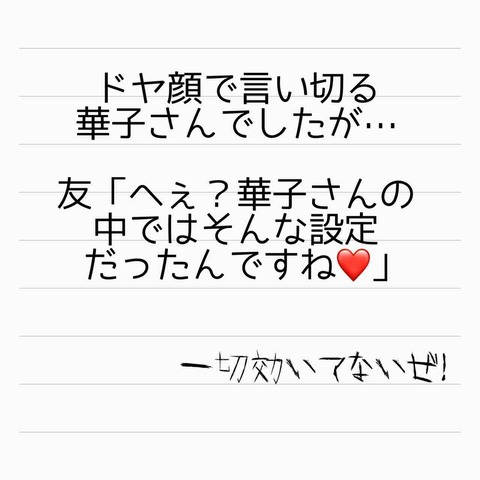 ドヤ顔で言い切る
華子さんでしたが…
友「へぇ?華子さんの
中ではそんな設定
だったんですね❤️」
一切効いてないぜ!